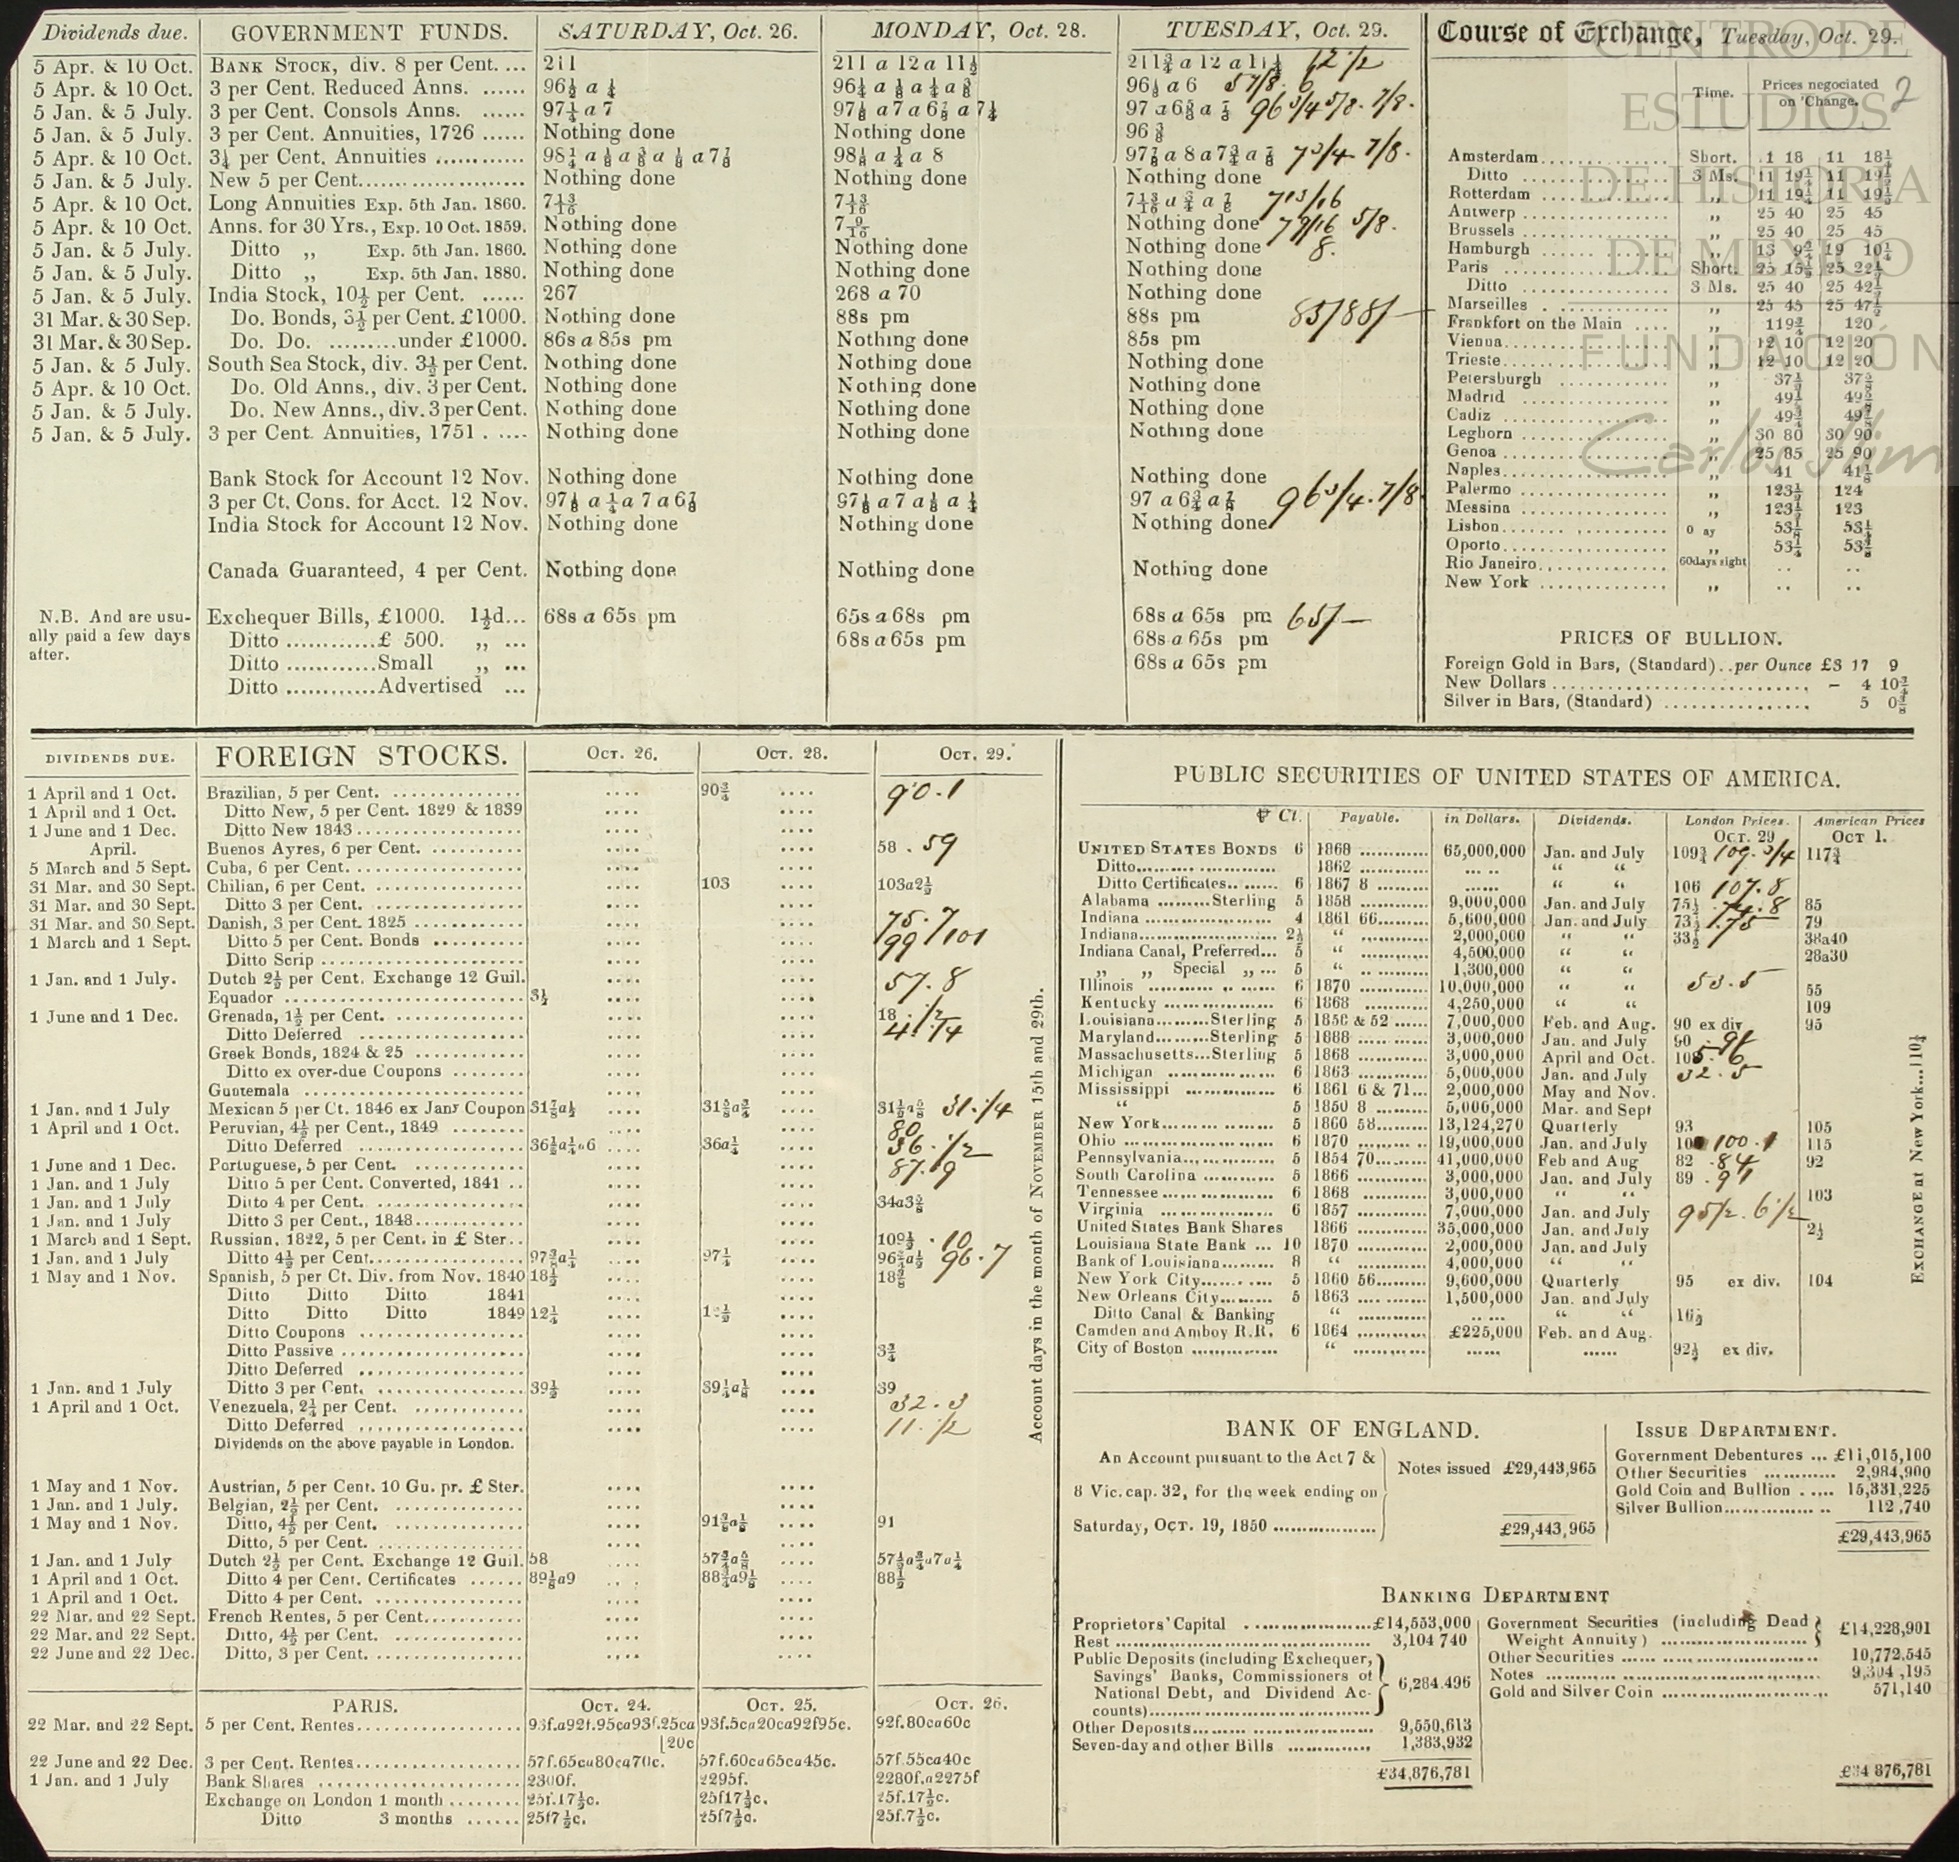 Dividends due. GOVERNMENT FUNDS. SATURDAY, Oct. 26. MONDAY, Oct. 28. TUESDAY, Oct. 29.
5 Apr. & 10 Oct. BANK STOCK, div. 8 per Cent. ... 211 211 a 12 a 11½ 211¾ a 12 a 11¼ 12 ½
5 Apr. & 10 Oct. 3 per Cent. Reduced Anns. ...... 96½ a ¼ 96¼ a ⅛ a ¼ a ⅜ 96⅛ a 6 5 7/8. 6
5 Jan. & 5 July. 3 per Cent. Consols Anns. ...... 97¼ a 7 97⅛ a 7 a 6⅞ a 7¼ 97 a 6⅝ a ⅞ 96 3/4 5/8. 7/8.
5 Jan. & 5 July. 3 per Cent. Annuities, 1726 ...... Nothing done Nothing done 96⅜
5 Apr. & 10 Oct. 3¼ per Cent. Annuities ............ 98¼ a ⅛ a ⅜ a ⅛ a 7⅞ 98⅛ a ¼ a 8 97⅞ a 8 a 7¾ a ⅞ 7 3/4 7/8.
5 Jan. & 5 July. New 5 per Cent........................ Nothing done Nothing done Nothing done
5 Apr. & 10 Oct. Long Annuities Exp. 5th Jan. 1860. 7 13/16 7 13/16 7 13/16 a ¾ a ⅞ 7 13/16
5 Apr. & 10 Oct. Anns. for 30 Yrs., Exp. 10 Oct. 1859. Nothing done 7 9/16 Nothing done 7 9/16 5/8.
5 Jan. & 5 July. Ditto „ Exp. 5th Jan. 1860. Nothing done Nothing done Nothing done 8.
5 Jan. & 5 July. Ditto „ Exp. 5th Jan. 1880. Nothing done Nothing done Nothing done
5 Jan. & 5 July. India Stock, 10½ per Cent. ...... 267 268 a 70 Nothing done
31 Mar. & 30 Sep. Do. Bonds, 3½ per Cent. £1000. Nothing done 88s pm 88s pm 85/88/-
31 Mar. & 30 Sep. Do. Do. .........under £1000. 86s a 85s pm Nothing done 85s pm
5 Jan. & 5 July. South Sea Stock, div. 3½ per Cent. Nothing done Nothing done Nothing done
5 Apr. & 10 Oct. Do. Old Anns., div. 3 per Cent. Nothing done Nothing done Nothing done
5 Jan. & 5 July. Do. New Anns., div. 3 per Cent. Nothing done Nothing done Nothing done
5 Jan. & 5 July. 3 per Cent. Annuities, 1751 . .... Nothing done Nothing done Nothing done
Bank Stock for Account 12 Nov. Nothing done Nothing done Nothing done
3 per Ct. Cons. for Acct. 12 Nov. 97⅛ a ¼ a 7 a 6⅞ 97⅛ a 7 a ⅛ a ¼ 97 a 6¾ a ⅞ 96 3/4. 7/8
India Stock for Account 12 Nov. Nothing done Nothing done Nothing done
Canada Guaranteed, 4 per Cent. Nothing done Nothing done Nothing done
N.B. And are usually paid a few days after.
Exchequer Bills, £1000. 1½d... 68s a 65s pm 65s a 68s pm 68s a 65s pm 65/-
Ditto ............£ 500. „ ... 68s a 65s pm 68s a 65s pm
Ditto ............Small „ ... 68s a 65s pm
Ditto ............Advertised ...
Course of Exchange, Tuesday, Oct. 29.
Time. Prices negociated on 'Change. 2
Amsterdam Short. 11 18 11 18¼
Ditto 3 Ms. 11 19¼ 11 19½
Rotterdam „ 11 19¼ 11 19½
Antwerp „ 25 40 25 45
Brussels „ 25 40 25 45
Hamburgh „ 13 9¾ 19 10¼
Paris Short. 25 15 25 22½
Ditto 3 Ms. 25 40 25 42½
Marseilles „ 25 45 25 47½
Frankfort on the Main „ 119¾ 120
Vienna „ 12 10 12 20
Trieste „ 12 10 12 20
Petersburgh „ 37½ 37⅝
Madrid „ 49½ 49⅝
Cadiz „ 49¾ 49⅞
Leghorn „ 30 80 30 90
Genoa „ 25 85 25 90
Naples „ 41 41⅛
Palermo „ 123½ 124
Messina „ 123½ 123
Lisbon 0 ay 53⅛ 53¼
Oporto „ 53¼ 53⅜
Rio Janeiro 60days sight .. ..
New York „ .. ..
PRICES OF BULLION.
Foreign Gold in Bars, (Standard)..per Ounce £3 17 9
New Dollars - 4 10¾
Silver in Bars, (Standard) 5 0⅜
CENTRO DE
ESTUDIOS
DE HISTORIA
DE MÉXICO
FUNDACIÓN
Carlos Slim
DIVIDENDS DUE. FOREIGN STOCKS. OCT. 26. OCT. 28. OCT. 29.
1 April and 1 Oct. Brazilian, 5 per Cent. .... 90¾ .... 90.1
1 April and 1 Oct. Ditto New, 5 per Cent. 1829 & 1839
1 June and 1 Dec. Ditto New 1843
April. Buenos Ayres, 6 per Cent. 58 . 59
5 March and 5 Sept. Cuba, 6 per Cent.
31 Mar. and 30 Sept. Chilian, 6 per Cent. 103 103a2½
31 Mar. and 30 Sept. Ditto 3 per Cent.
31 Mar. and 30 Sept. Danish, 3 per Cent. 1825 75.7
1 March and 1 Sept. Ditto 5 per Cent. Bonds 99 101
Ditto Scrip
1 Jan. and 1 July. Dutch 2½ per Cent. Exchange 12 Guil. 57.8
Equador 3½
1 June and 1 Dec. Grenada, 1½ per Cent. 18 . ½
Ditto Deferred 4.¼
Greek Bonds, 1824 & 25
Ditto ex over-due Coupons
Guatemala
1 Jan. and 1 July Mexican 5 per Ct. 1846 ex Jany Coupon 31⅞a½ 31⅝a¾ 31½a⅝ 31.¼
1 April and 1 Oct. Peruvian, 4½ per Cent., 1849 80
Ditto Deferred 36½a¼a6 36a¼ 36.½
1 June and 1 Dec. Portuguese, 5 per Cent. 87.9
1 Jan. and 1 July Ditto 5 per Cent. Converted, 1841
1 Jan. and 1 July Ditto 4 per Cent. 34a3⅝
1 Jan. and 1 July Ditto 3 per Cent., 1848
1 March and 1 Sept. Russian, 1822, 5 per Cent. in £ Ster.. 109½ . 10
1 Jan. and 1 July Ditto 4½ per Cent. 97⅜a¼ 97¼ 96¾a½ 96.7
1 May and 1 Nov. Spanish, 5 per Ct. Div. from Nov. 1840 18½ 18⅜
Ditto Ditto Ditto 1841
Ditto Ditto Ditto 1849 12¼
Ditto Coupons
Ditto Passive 3¾
Ditto Deferred
1 Jan. and 1 July Ditto 3 per Cent. 39½ 39¼a⅛ 39
1 April and 1 Oct. Venezuela, 2¼ per Cent. 32.3
Ditto Deferred 11.½
Dividends on the above payable in London.
1 May and 1 Nov. Austrian, 5 per Cent. 10 Gu. pr. £ Ster.
1 Jan. and 1 July. Belgian, 2½ per Cent.
1 May and 1 Nov. Ditto, 4½ per Cent. 91⅜a⅛ 91
Ditto, 5 per Cent.
1 Jan. and 1 July Dutch 2½ per Cent. Exchange 12 Guil. 58 57¾a⅝ 57½a¾a7a¼
1 April and 1 Oct. Ditto 4 per Cent. Certificates 89⅛a9 88¾a9⅛ 88½
1 April and 1 Oct. Ditto 4 per Cent.
22 Mar. and 22 Sept. French Rentes, 5 per Cent.
22 Mar. and 22 Sept. Ditto, 4½ per Cent.
22 June and 22 Dec. Ditto, 3 per Cent.
PARIS. OCT. 24. OCT. 25. OCT. 26.
22 Mar. and 22 Sept. 5 per Cent. Rentes 93f.a92f.95ca93f.25ca 93f.5ca20ca92f95c. 92f.80ca60c
[20c
22 June and 22 Dec. 3 per Cent. Rentes 57f.65ca80ca70c. 57f.60ca65ca45c. 57f.55ca40c
1 Jan. and 1 July Bank Shares 2300f. 2295f. 2280f.a2275f
Exchange on London 1 month 25f.17½c. 25f17½c. 25f.17½c.
Ditto 3 months 25f7½c. 25f7½c. 25f.7½c.
Account days in the month of NOVEMBER 15th and 29th.
PUBLIC SECURITIES OF UNITED STATES OF AMERICA.
℔ Ct. Payable. in Dollars. Dividends. London Prices. OCT. 29 American Prices OCT 1.
UNITED STATES BONDS 6 1868 65,000,000 Jan. and July 109¾ 109.¾ 117¾
Ditto 1862 “ “
Ditto Certificates 6 1867 8 “ “ 106 107.8
Alabama Sterling 5 1858 9,000,000 Jan. and July 75½ 85
Indiana 4 1861 66 5,600,000 Jan. and July 73½ .75 79
Indiana 2½ “ 2,000,000 “ “ 33½ 38a40
Indiana Canal, Preferred... 5 “ 4,500,000 “ “ 28a30
„ „ Special „ ... 5 “ 1,300,000 “ “
Illinois 6 1870 10,000,000 “ “ 53.5 55
Kentucky 6 1868 4,250,000 “ “ 109
Louisiana Sterling 5 1850 & 52 7,000,000 Feb. and Aug. 90 ex div 95
Maryland Sterling 5 1888 3,000,000 Jan. and July 90 . 91
Massachusetts...Sterling 5 1868 3,000,000 April and Oct. 105.6
Michigan 6 1863 5,000,000 Jan. and July 32.5
Mississippi 6 1861 6 & 71... 2,000,000 May and Nov.
“ 5 1850 8 5,000,000 Mar. and Sept
New York 5 1860 58 13,124,270 Quarterly 93 105
Ohio 6 1870 19,000,000 Jan. and July 100.1 115
Pennsylvania 5 1854 70 41,000,000 Feb and Aug 82 .84 92
South Carolina 5 1866 3,000,000 Jan. and July 89 . 91
Tennessee 6 1868 3,000,000 “ “ 103
Virginia 6 1857 7,000,000 Jan. and July 95½. 6½
United States Bank Shares 1866 35,000,000 Jan. and July 2½
Louisiana State Bank ... 10 1870 2,000,000 Jan. and July
Bank of Louisiana 8 “ 4,000,000 “ “
New York City 5 1860 56 9,600,000 Quarterly 95 ex div. 104
New Orleans City 5 1863 1,500,000 Jan. and July
Ditto Canal & Banking “ “ “ 16½
Camden and Amboy R.R. 6 1864 £225,000 Feb. and Aug.
City of Boston “ 92½ ex div.
EXCHANGE at New York...110¼
BANK OF ENGLAND.
An Account pursuant to the Act 7 &
8 Vic. cap. 32, for the week ending on
Saturday, OCT. 19, 1850
Notes issued £29,443,965
£29,443,965
ISSUE DEPARTMENT.
Government Debentures ... £11,015,100
Other Securities 2,984,900
Gold Coin and Bullion 15,331,225
Silver Bullion 112,740
£29,443,965
BANKING DEPARTMENT
Proprietors' Capital £14,553,000
Rest 3,104 740
Public Deposits (including Exchequer,
Savings' Banks, Commissioners of
National Debt, and Dividend Ac-
counts) 6,284.496
Other Deposits 9,550,613
Seven-day and other Bills 1,383,932
£34,876,781
Government Securities (including Dead
Weight Annuity) £14,228,901
Other Securities 10,772,545
Notes 9,304,195
Gold and Silver Coin 571,140
£34 876,781